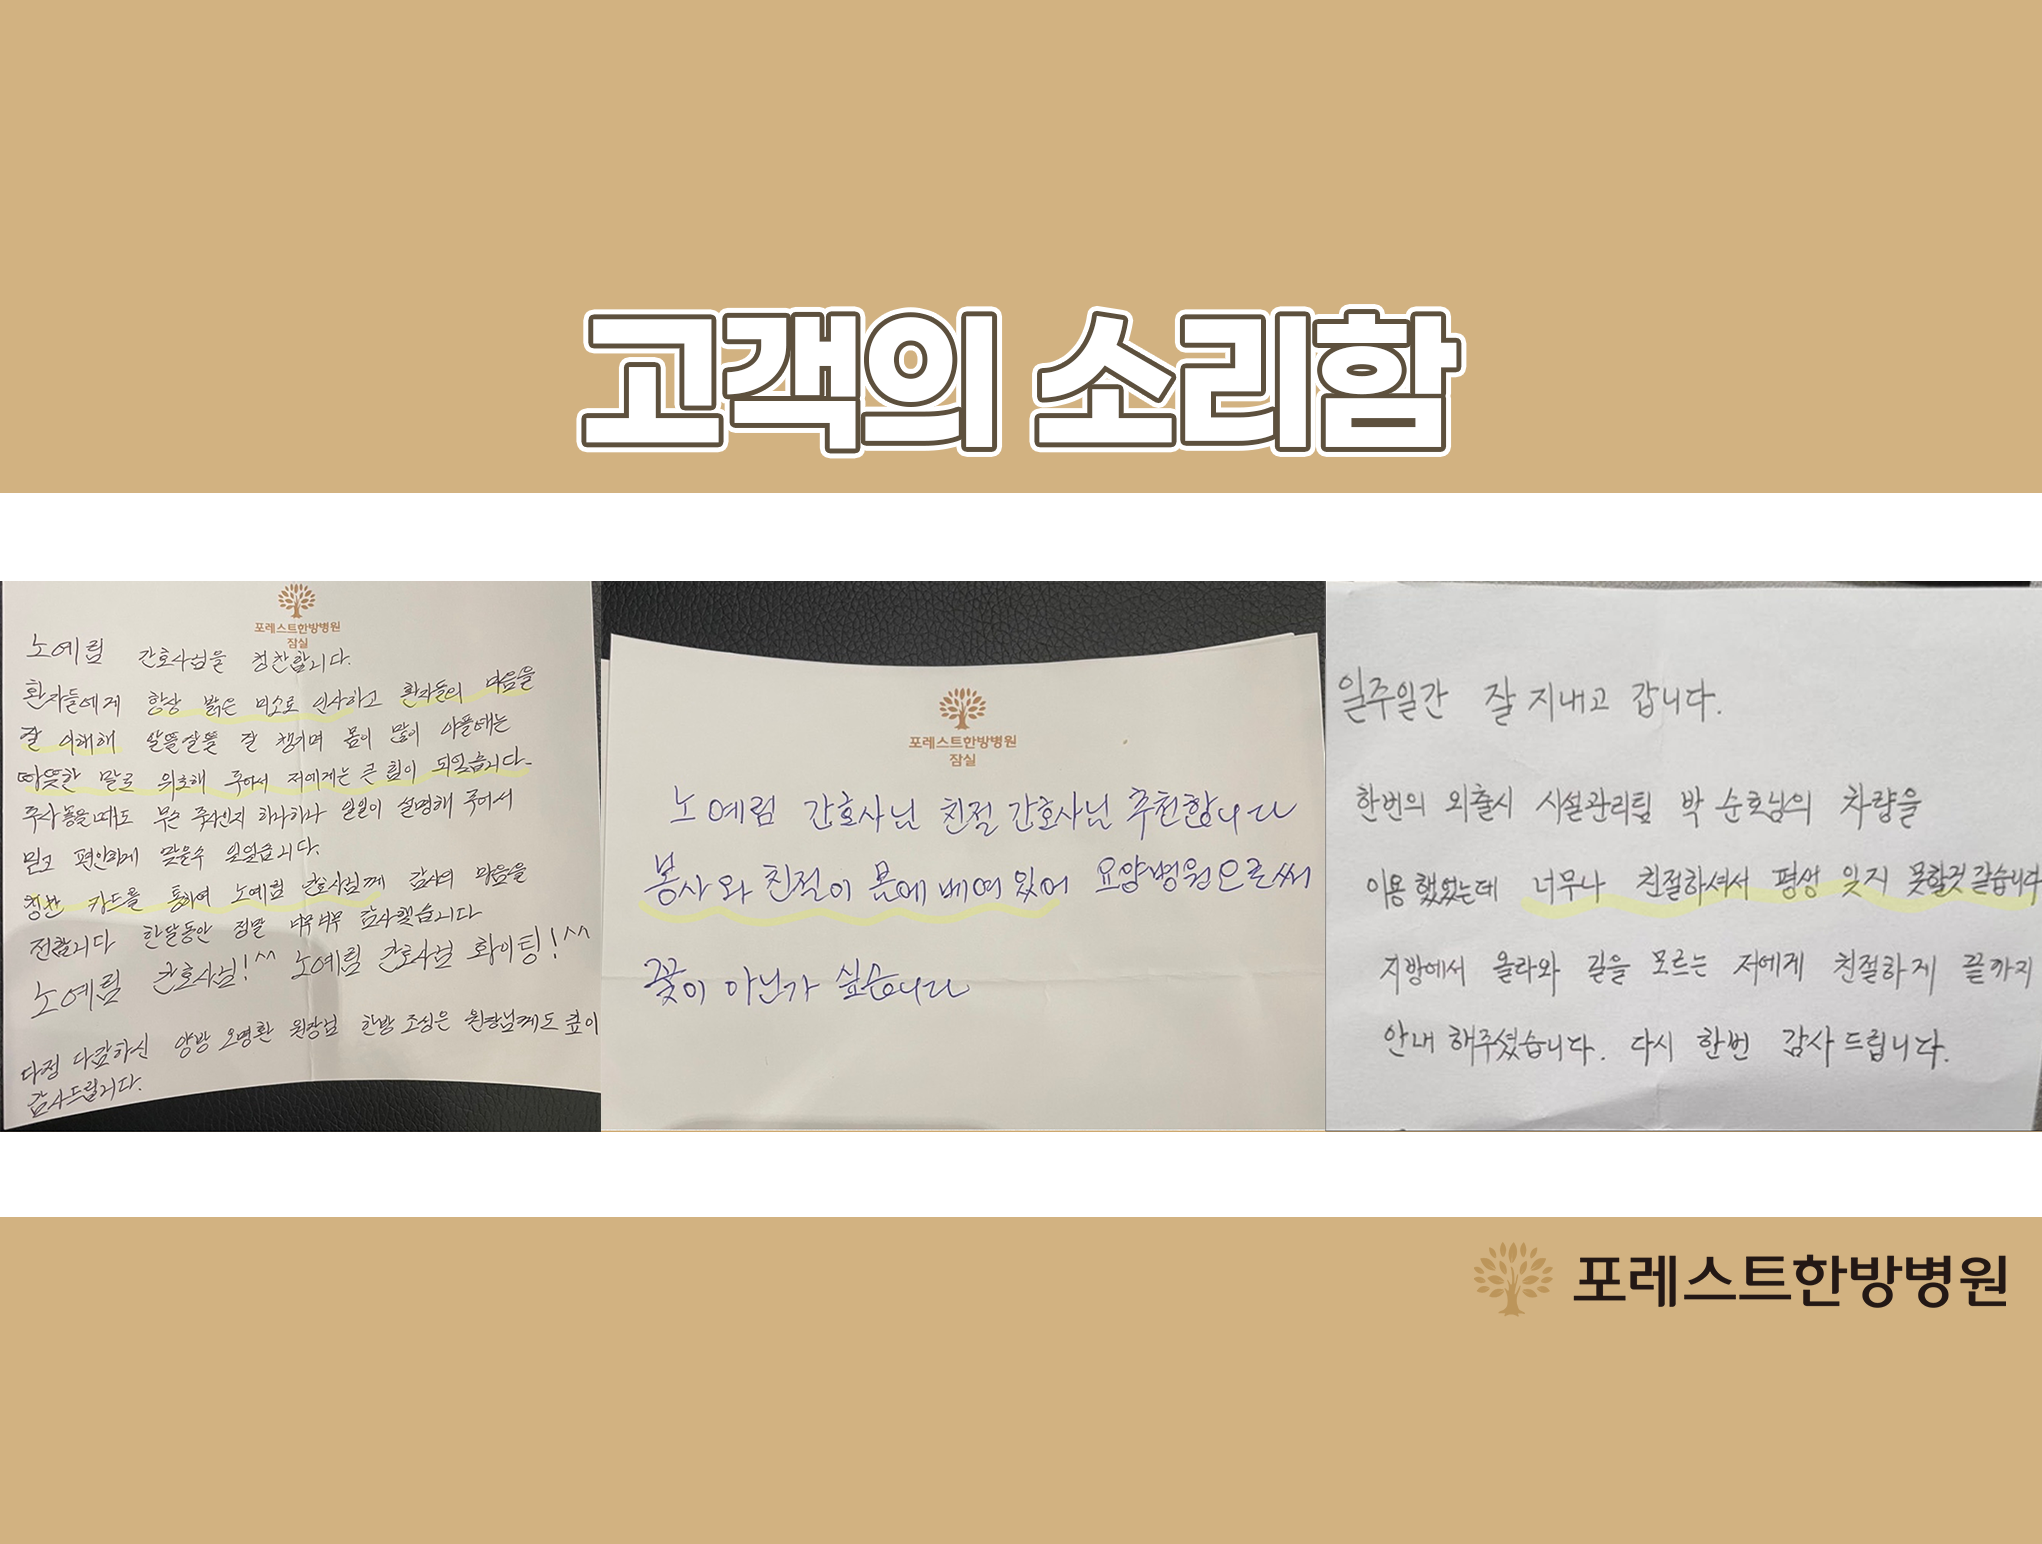 고객의 소리함
포레스트한방병원
잠실
노예림 간호사님을 칭찬합니다.
환자들에게 항상 밝은 미소로 인사하고 환자들의 마음을
잘 이해해 살뜰살뜰 잘 챙기며 몸이 많이 아플때는
따뜻한 말로 위로해 주어서 저에게는 큰 힘이 되었습니다.
주사 놓을때도 무슨 주사인지 하나하나 일일이 설명해 주어서
믿고 편안하게 맞을수 있었습니다.
칭찬 카드를 통하여 노예림 간호사님께 감사의 마음을
전합니다 한달동안 정말 너무너무 감사했습니다
노예림 간호사님!^^ 노예림 간호사님 화이팅!^^
다정 다감하신 양방 오명환 원장님 한방 조성은 원장님께도 깊이
감사드립니다.
포레스트한방병원
잠실
노예림 간호사님 친절 간호사님 추천합니다
봉사와 친절이 몸에 베여 있어 요양병원으로써
꽃이 아닌가 싶습니다
일주일간 잘 지내고 갑니다.
한번의 외출시 시설관리팀 박순호님의 차량을
이용했었는데 너무나 친절하셔서 평생 잊지 못할것 같습니다
지방에서 올라와 길을 모르는 저에게 친절하게 끝까지
안내 해주셨습니다. 다시 한번 감사드립니다.
포레스트한방병원